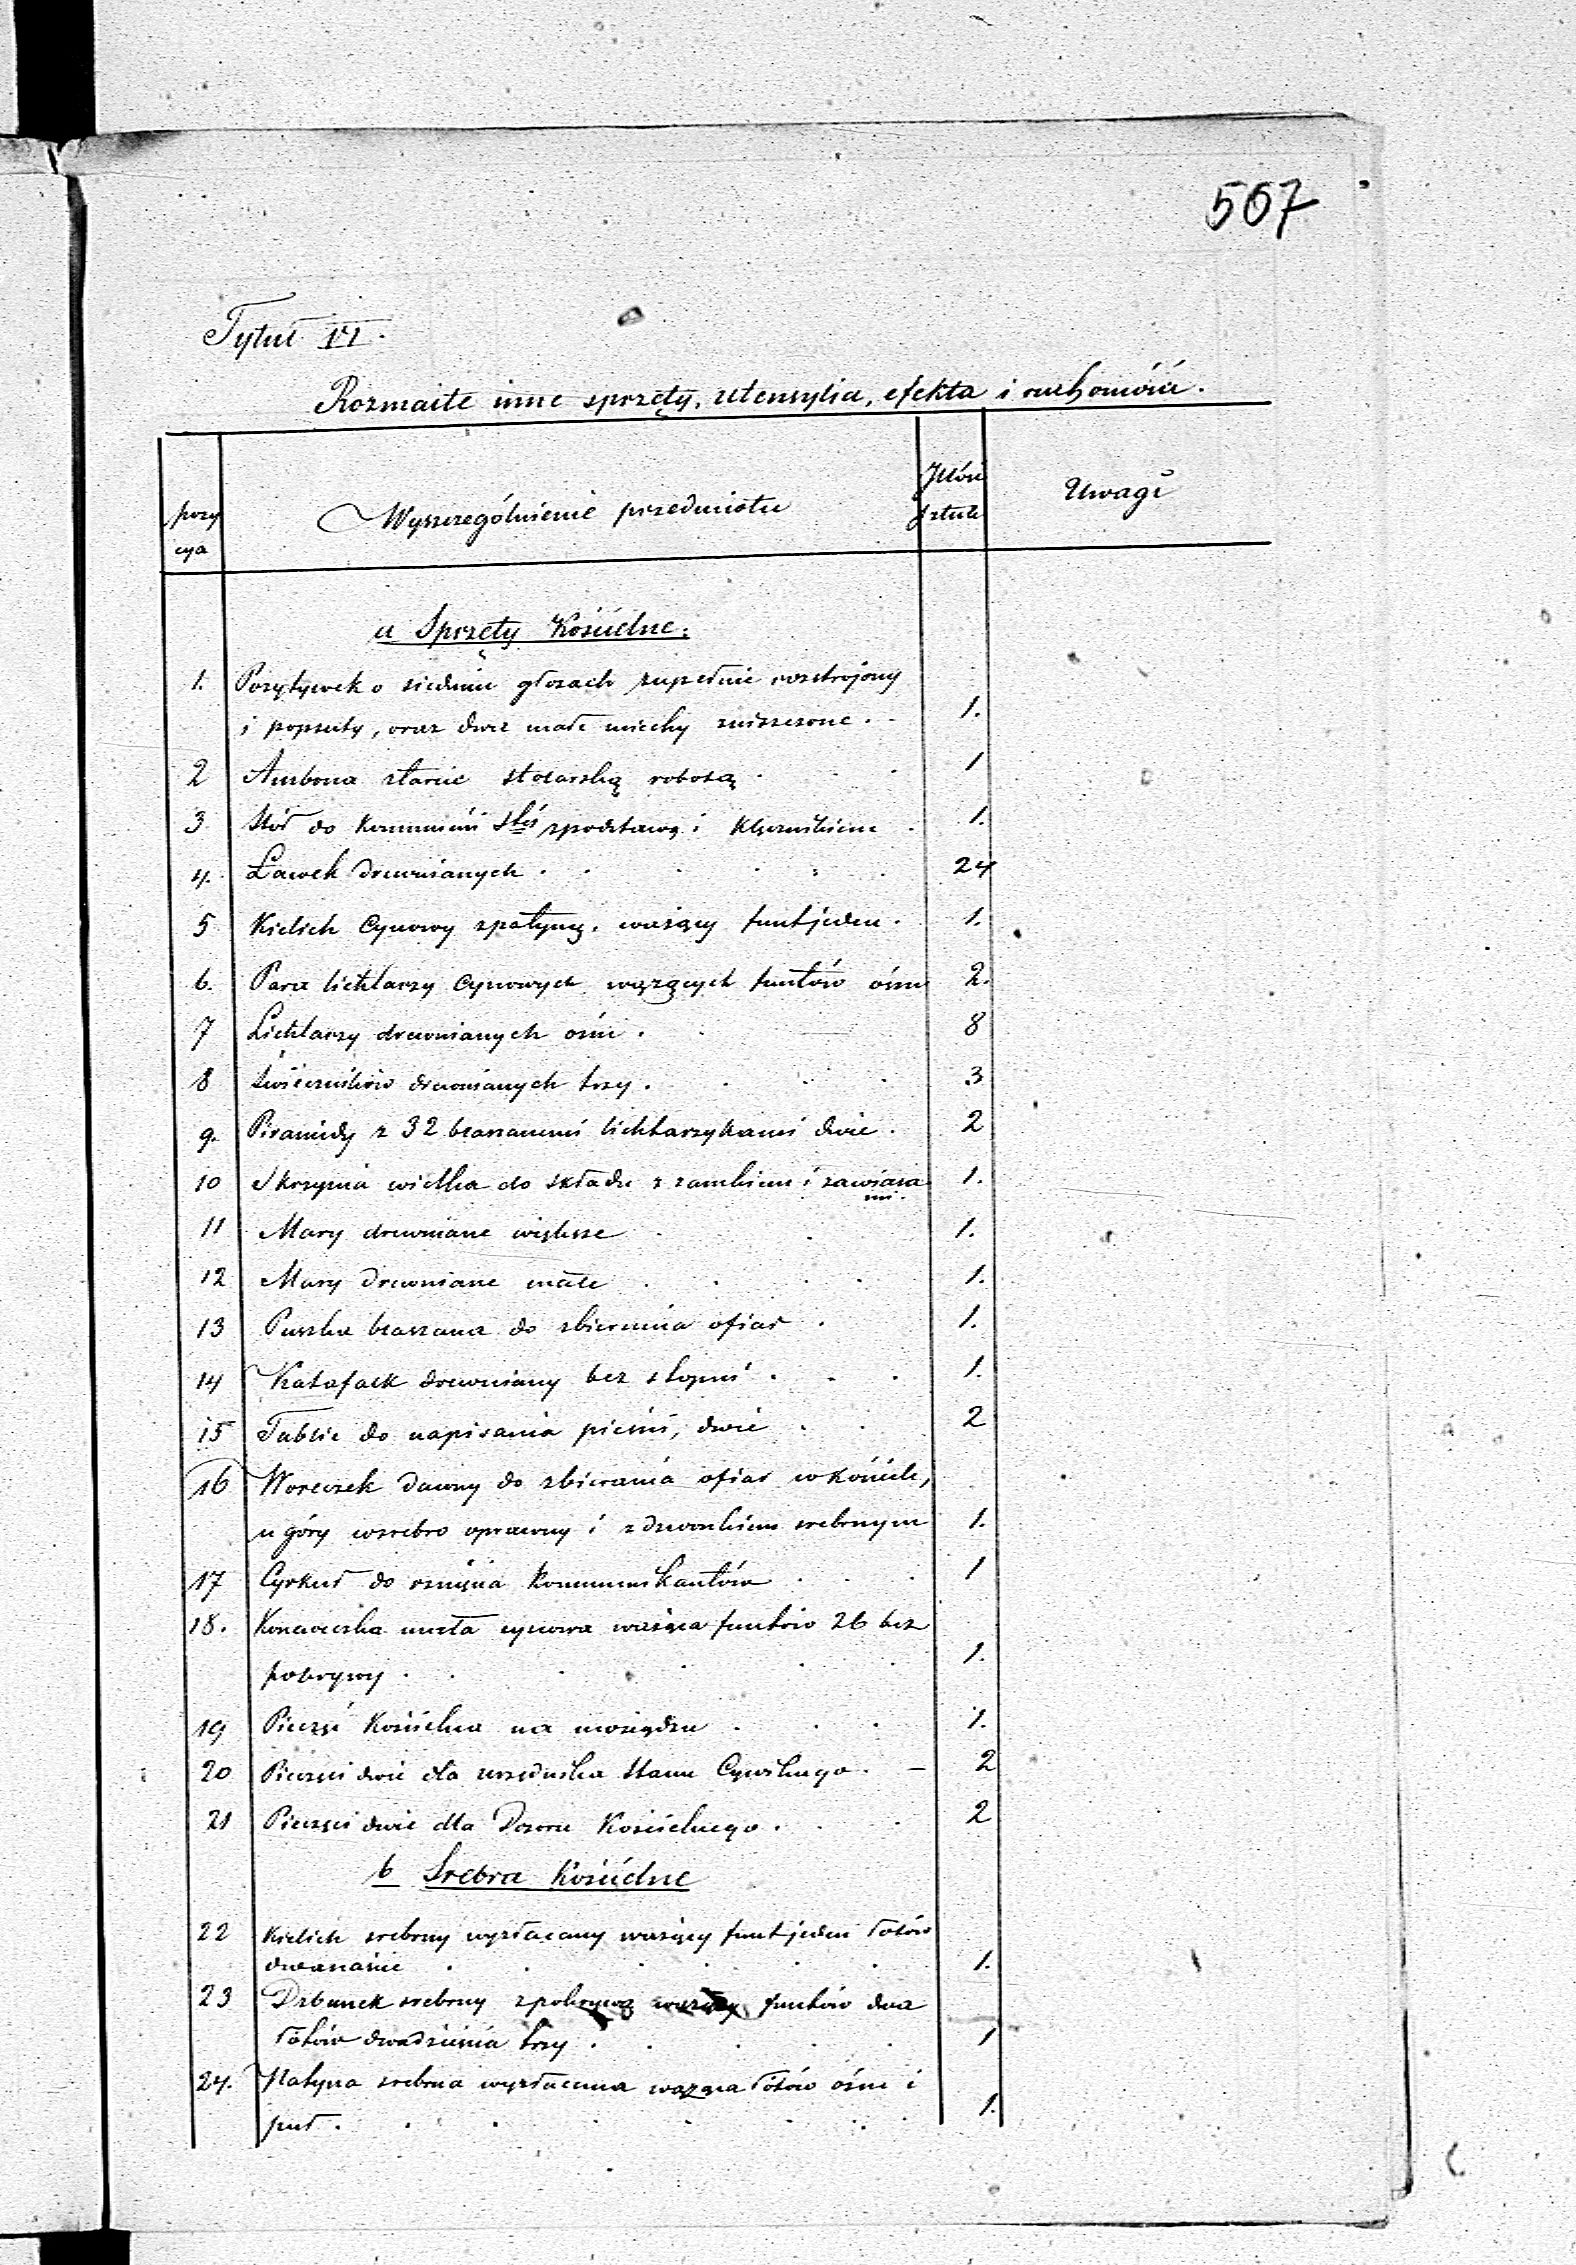 507
Tytuł VI.
Rozmaite inne sprzęty, utensylia, efekta i ruchomości.
pozy
cya
Wyszczególnienie przedmiotu
Jlość
sztuk
Uwagi
a Sprzęty Kościelne.
1. Pozytywek o siedmiu głosach zupełnie rozstrojony
i popsuty, oraz dwa małe miechy zniszczone. 1.
2 Ambona starne stolarską robotą 1
3 Stół do Kommunii Stéj z podstawą i Klęcznikiem 1.
4. Ławek drewnianych 24
5 Kielich Cynowy z patyną. ważący funt jeden. 1.
6. Para lichtarzy Cynowych ważących funtów ośm 2.
7 Lichtarzy drewnianych ośm. 8
8 Świeczników drewnianych trzy. 3
9. Piramidy z 32 blaszanemi lichtarzykami dwie. 2
10 Skrzynia wielka do składu z zamkiem i zawiasa
mi. 1.
11 Mary drewniane większe 1.
12 Mary drewniane małe 1.
13 Puszka blaszana do zbierania ofiar 1.
14 Katafalk drewniany bez stopni 1.
15 Tablic do napisania pieśni, dwie 2
16 Woreczek dawny do zbierania ofiar w kościele,
u góry w srebro oprawny i z dzwonkiem srebrnym 1.
17 Cyrkuł do rznięcia Kommunikantów 1
18. Koneweczka mała cynowa ważąca funtów 26 bez
pokrywy 1.
19 Pieczęć Kościelna na mosiądzu 1.
20 Pieczęci dwie dla urzędnika Stanu Cywilnego. – 2
21 Pieczęci dwie dla Dozoru Kościelnego. 2
b Srebra Kościelne
22 Kielich srebrny wyzłacany ważący funt jeden łotów
dwanaście 1.
23 Dzbanek srebrny z pokrywą ważący funtów dwa
łótów dwadzieścia trzy. 1
24. Patyna srebrna wyzłacana ważąca łótów ośm i
puł. 1.